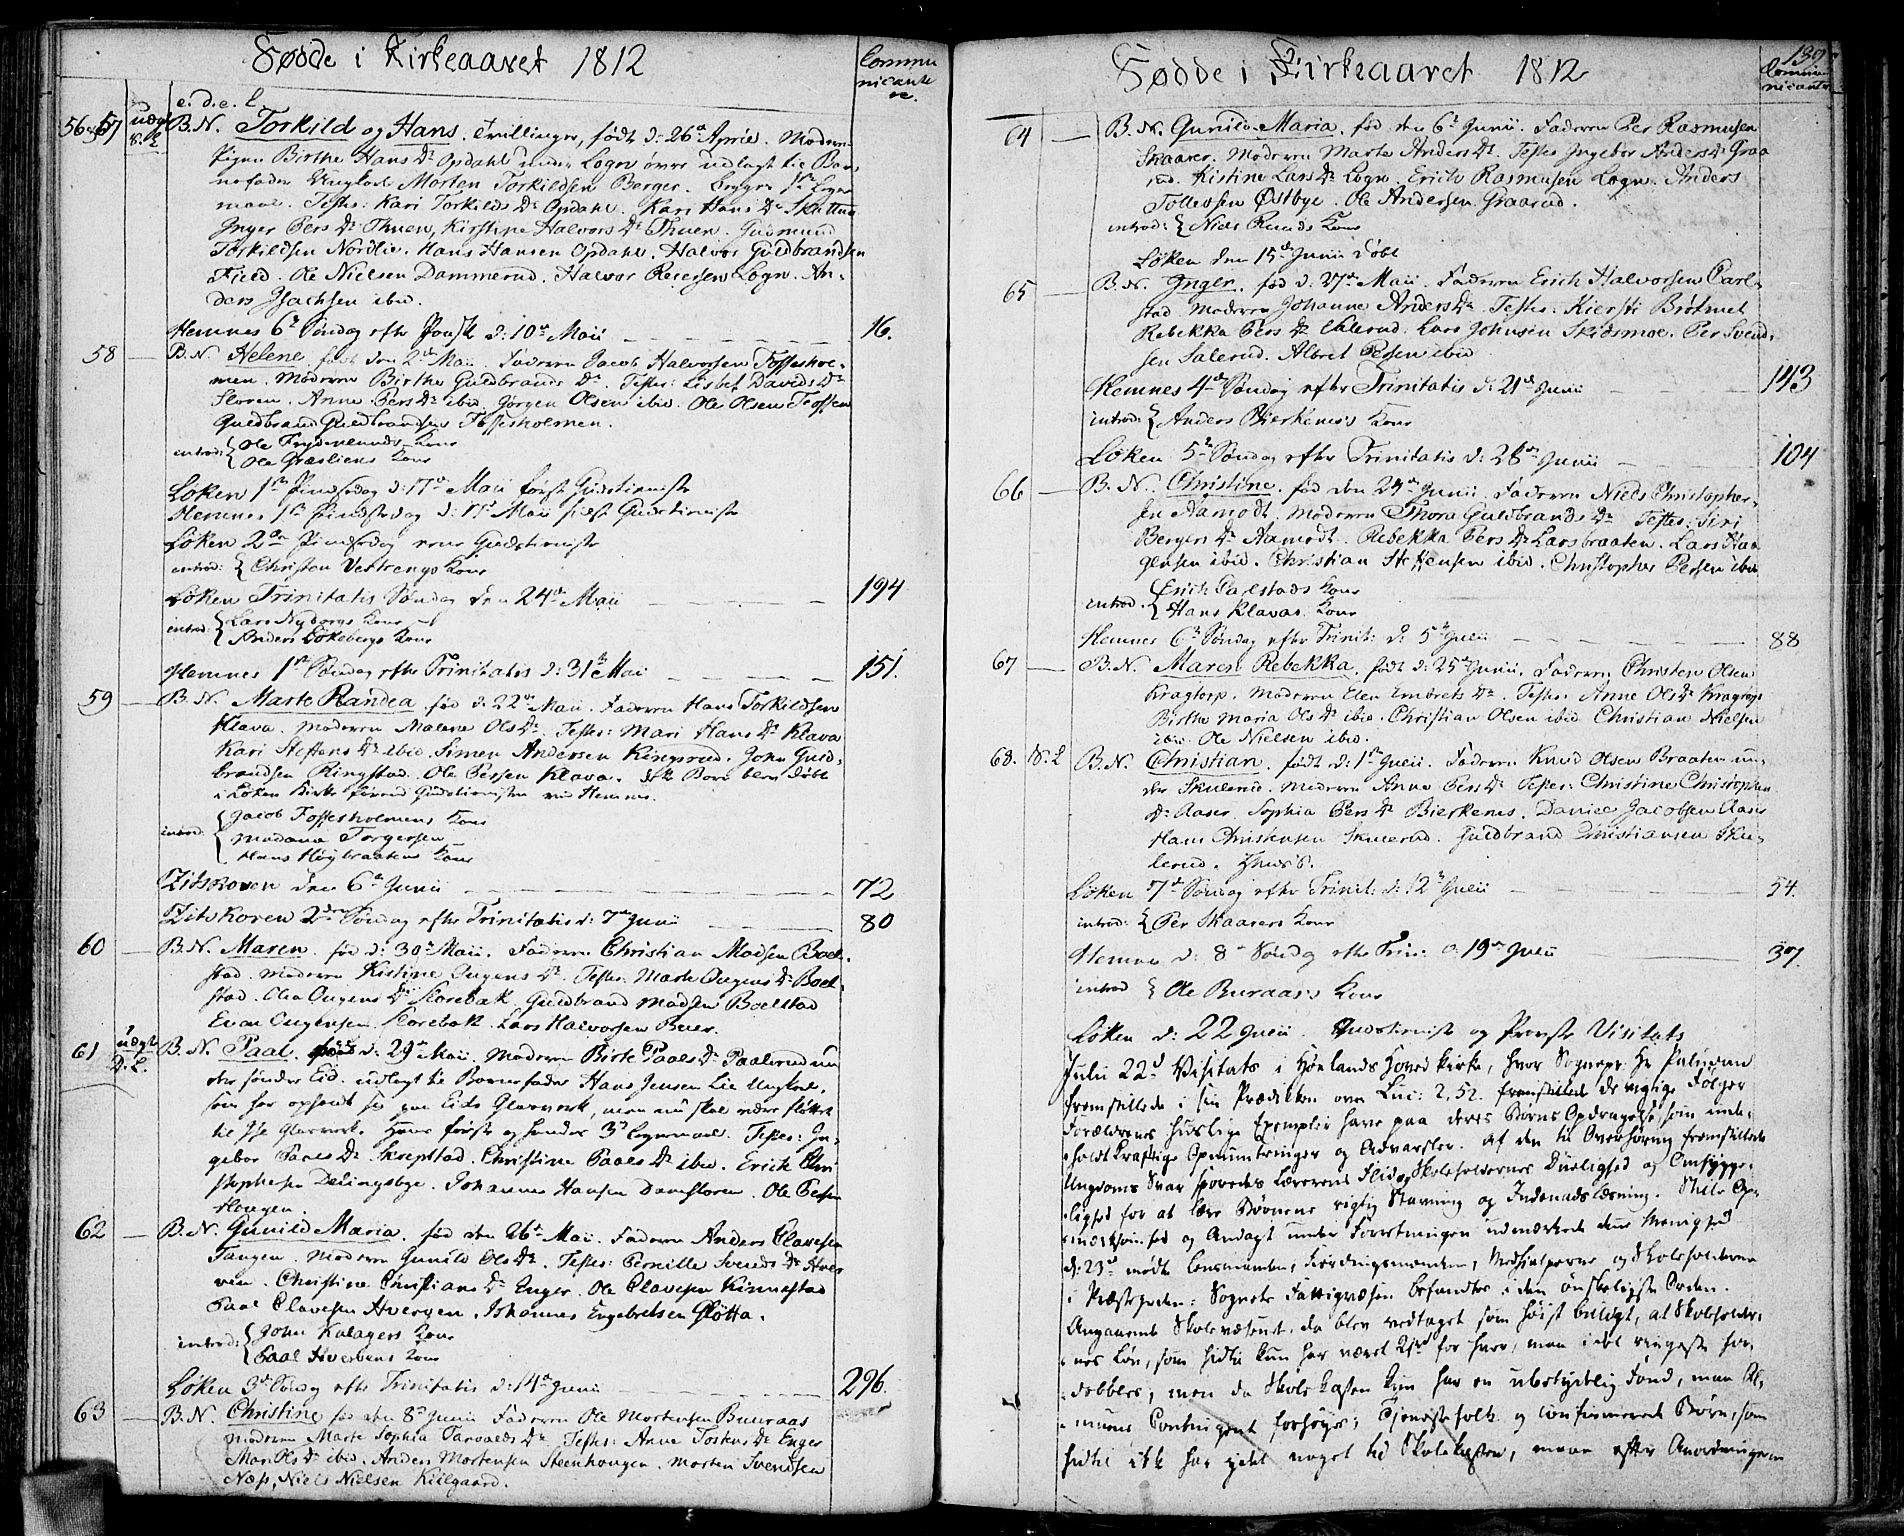 Fødde i Kirkeaaret 1812
Commu
nicante
e. d. e. l.
56 & 57 uægte B.N. Torkild og Hans. Tvillinger, født d: 26de April. Moderen
Pigen Birthe Hans Dr. Opdahl under Sogn
Ungkarl Morten Torkildsen Berger.
Testes: Kari Torkilds Dr. Opdahl. Kari Hans Dr.
Inger Pers Dr. Thuen, Kirstine Halvors Dr. Thuen. Gudmund
Torkildsen Nordlie. Hans Hansen Opdahl. Halvor Guldbrandsen
Ole Nielsen Dammerud. Halvor Sogn. An-
ders Isachsen ibid.
Hemnes 6te Søndag efter Paask d: 10de Maii 16.
58 B.N. Helene, født den 2den Maii. Faderen Jacob Halvorsen Fosseshol-
men. Moderen Birthe Guldbrands Dr. Testes: Lisbet Davids Dr.
Sloren. Anne Pers Dr. ibid. Jørgen Olsen ibid. Ole Olsen Tofsen
Guldbrand Guldbrandsen Fossesholmen.
introd: Ole Frydenlunds Kone
Ole Græsliens Kone
Løken 1ste Pindsedag d: 17de Maii første Gudstieniste
Hemnes 1ste Pindsedag d: 17de Maii sidste Gudstieniste
Løken 2den Pindsedag Gudstieniste
introd: Christen Vestrengs Kone
Løken Trinitatis Søndag den 24de Maii 194
introd: Lars Nyborgs Kone
Anders Løkebergs Kone
Hemnes 1ste Søndag efter Trinitatis d: 31te Maii 151.
59 B.N. Marte Randea født d: 22de Maii. Faderen Hans Torkildsen
Klava. Moderen Malene Ols Dr. Testes: Mari Hans Dr. Klava
Kari Steffens Dr. ibid. Simen Andersen Kingsrud. John Guld-
brandsen Ringstad. Ole Persen Klava. Barn blev døbt
i Løken Kirke førend Gudstienisten ved Hemnes.
introd: Jacob Fossesholmens Kone
Madame Torgersen
Hans Høybraatens Kone
Zitskoven den 6te Junii 72
Zitskoven 2den Søndag efter Trinitatis d: 7de Junii 80
60 B.N. Maren. født d: 30te Maii. Faderen Christian Madsen Boel-
stad. Moderen Kistine Ougens Dr. Testes: Marte Ougens Dr. Boel-
stad. Olea Ougens Dr. Slorebæk. Guldbrand Madsen Boelstad
Even Ougensen Slorebæk. Lars Halvorsen Beier.
61 uægte B.N. Paal. født d: 29de Maii. Moderen Birte Paals Dr. Paalerud un-
der søndre Eid. udlagt til Barnefader Hans Jensen Lie Ungkarl,
som har opholdt sig paa Eids Glasværk, men nu skal være fløttet
til Glasværk. Hans første og hendes 3die Leiermaal. Testes: In-
gebor Paals Dr. Skrepstad. Christine Paals Dr. ibid. Erich Chri-
stophersen Dellingsbye. Johannes Hansen Damsloren. Ole Persen
Haugen.
62 B.N. Gunild Maria. født den 26de Maii. Faderen Anders Clavesen
Tangen. Moderen Gunild Ols Dr. Testes: Pernille Svends Dr. Hver-
ven. Christine Christians Dr. Enger. Ole Clavesen Kinnestad
Paal Clavesen Hverven. Johannes Engebretsen Sløtta.
introd: John Kalagers Kone
Paal Hvervens Kone
Løken 3die Søndag efter Trinitatis d: 14de Junii 296.
63 B.N. Christine født den 8de Junii Faderen Ole Mortensen Buuraas
Moderen Marte Sophia Dr. Testes: Anne Dr. Enger
Mari Ols Dr. ibid. Anders Mortensen Steenhougen. Morten Svendsen
Næs, Niels Nielsen Kiilgaard.
Fødde i Kirkeaaret 1812
139
Commu
nicante
64 B.N. Gunild Maria, født den 6te Junii. Faderen Per Rasmusen
Skaarer. Moderen Marte Anders Dr. Testes Ingebor Anders Dr. Graa-
rud. Kistine Lars Dr. Sogn. Erich Rasmusen Sogn. Anders
Tollevsen Østbye. Ole Andersen Graarud.
introd: Niels Runds Kone
Løken den 15de Junii Døbt
65 B.N. Inger. født d: 27de Maii. Faderen Erich Halvorsen Carl-
stad Moderen Johanne Anders Dr. Testes: Kiersti Brøtmet
Rebekka Pers Dr. Lars Johnsen Skidsmoe. Per Svend-
sen Salerud. Albret Persen ibid
Hemnes 4de Søndag efter Trinitatis d: 21de Junii 143
introd: Anders Bierkenes's Kone
Løken 5te Søndag efter Trinitatis d: 28de Junii 104
66 B.N. Christine. født den 24de Junii. Faderen Niels Christopher-
sen Aamodt. Moderen Thora Guldbrands Dr. Testes: Siri
Bergers Dr. Aamodt. Rebekka Pers Dr. Larsbraaten. Lars Haa-
gensen ibid. Christian Steffensen ibid. Christopher Persen ibid
introd: Erich Carlstads Kone
Hans Klavas Kone
Hemnes 6te Søndag efter Trinit: d: 5te Julii 88
67 B.N. Maren Rebekka, født d: 25de Junii. Faderen Christen Olsen
Kragtorp. Moderen Elen Embrets Dr. Testes: Anne Ols Dr. Kragtorp
Birthe Maria Ols Dr. ibid. Christian Olsen ibid. Christian Nielsen
ibid. Ole Nielsen ibid.
68. B.N. Christian. født d: 1ste Julii. Faderen Knud Olsen Braaten un-
der Skulerud. Moderen Anne Pers Dr. Testes: Christine Christophers
Dr. Aaser. Sophia Pers Dr. Bierkenes. Daniel Jacobsen Aaser
Hans Christensen Skulerud. Guldbrand Christiansen Sku-
lerud.
Løken 7de Søndag efter Trinit: d: 12te Julii 54.
introd: Per Skaarers Kone
Hemnes d: 8de Søndag efter Trin: d: 19de Julii 37.
introd Ole Buraas's Kone
Løken d: 22 Julii. Gudstieniste og Provste Visitats
Julii 22d Visitats i Hølands Hovedkirke, hvor Sognepr. Hr Paludan
fremstillede i sin Prædiken over Luc: 2,52. fremstillede de vigtige Følger
Forældrenes huslige Exempler have paa deres Børns Opdragelse, som inde-
holdt kraftige Opmuntringer og Advarsler. Af den til Overhøring fremstillede
Ungdoms Svar sporedes Lærerens Flid, Skoleholdernes Duelighed og Omhygge-
lighed for at lære Børnene rigtig Stavning og Indenadslæsning. Stille Op-
mærksomhed og Andagt under Forretningen udmærkede denne Menighed
d: 23d mødte Lensmanden, Fierdingsmændene, Medhielperne og Skoleholderne
i Præstegaarden: Sognets Fattigvæsen befandtes i den ønskeligste Orden.
Angaaende Skolevæsenet, da blev vedtaget som høist billigt, at Skoleholder-
nes Løn, som hidtil kun har været 24rd for hver, maa i det ringeste for-
dobbles; men da Skole Kassen kun har en ubetydelig Fond, maa Al-
muens Contingent forhøies; Tjenestefolk og confirmerede Børn, som
hidtil ikke har ydet noget til Skolekassen, maae efter Anordningen